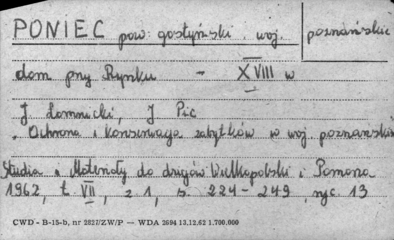 PONIEC pow. gostyński, woj. poznańskie
dom przy Rynku - XVIII w
J. Łomnicki, J Pic
Ochrona i konserwacja zabytków w woj. poznańskim
Studia i Materiały do dziejów Wielkopolski i Pomorza
1962, t. VII, z 1, s. 224-249, ryc. 13
CWD - B-15-b, nr 2827/ZW/P — WDA 2694 13.12.62 1.700.000